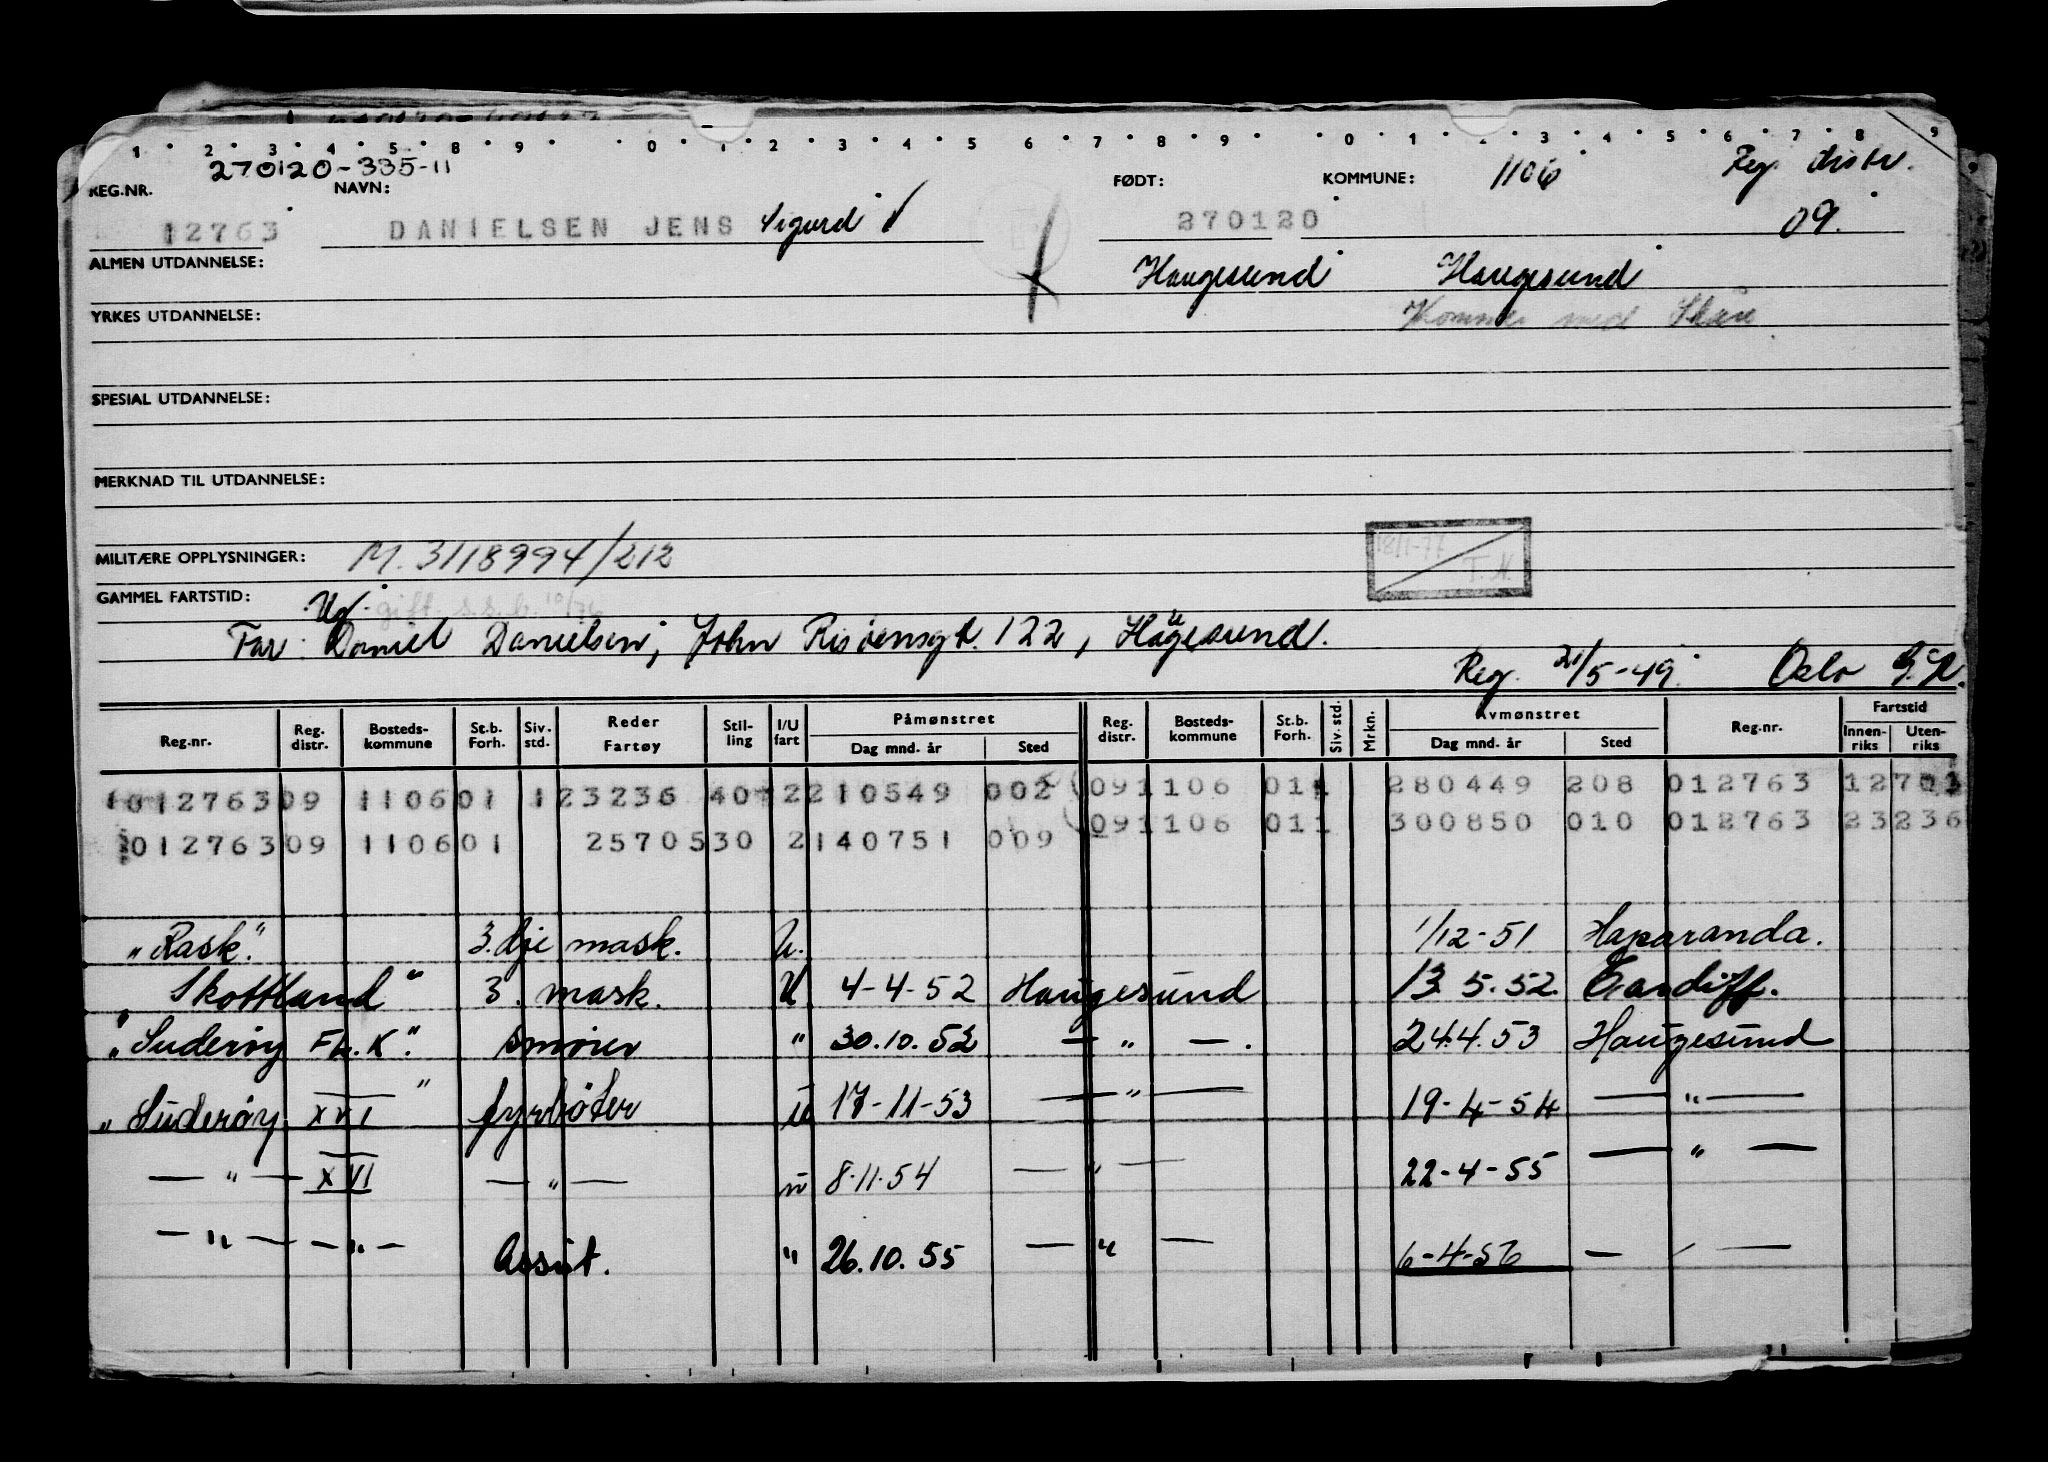 1 2 3 4 5 8 9 0 1 2 3 4 5 6 7 8 9 0 1 3 4 5 6 7 8 9
270120-335-11 1106 Reg. distr.
REG.NR. NAVN: FØDT: KOMMUNE:
12763 DANIELSEN JENS Sigurd 270120 09.
ALMEN UTDANNELSE: Haugesund Haugesund
YRKES UTDANNELSE: Kommer med
SPESIAL UTDANNELSE:
MERKNAD TIL UTDANNELSE:
MILITÆRE OPPLYSNINGER: M. 3118994/212 18/1-77 T.N.
GAMMEL FARTSTID: Ug. gift. s.s.b. 10/76
Far: Daniel Danielsen, John Risøensgt. 122, Haugesund.
Reg. 21/5-49. Oslo
Reg.nr. Reg. distr. Bosteds-kommune St.b. Forh. Siv. std. Reder Fartøy Stil-ling I/U fart Påmønstret Dag mnd. år Sted Reg. distr. Bosteds-kommune St.b. Forh. Siv. std. Mrkn. Avmønstret Dag mnd. år Sted Reg.nr. Fartstid Innen-riks Uten-riks
012763 09 1106 01 1 23236 40 2 210549 002 09 1106 011 280449 208 012763 12 701
09 1106 011 300850 010 012763 23 236
012763 09 1106 01 25705 30 2 140751 009
"Rask". 3. dje mask. U. 1/12-51 Haparanda.
"Skottland" 3. mask. U 4-4-52 Haugesund 13.5.52. Cardiff.
"Suderøy Fl.K". Smører " 30.10.52 — " — . 24.4.53 Haugesund
"Suderøy XVI" fyrbøter u 17-11-53 — " — 19-4-54 — " —
— " — XVI — " — u 8.11.54 — " — 22-4-55 — " —
— " — — " — Assist. " 26.10.55 — " — 6-4-56 — —